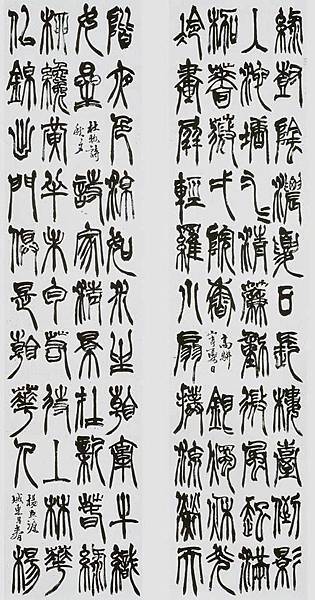 綠樹陰濃夏日長樓臺倒影
入池塘水精簾動微風起滿
架薔薇一院香高駢夏日銀燭秋光
冷畫屏輕羅小扇撲流螢天
階夜色涼如水坐看牽牛織
女星杜牧詩秋夕詩家清景在新春綠
柳纔黃半未勻若待上林華
似錦出門俱是看華人楊巨源城東早春楊